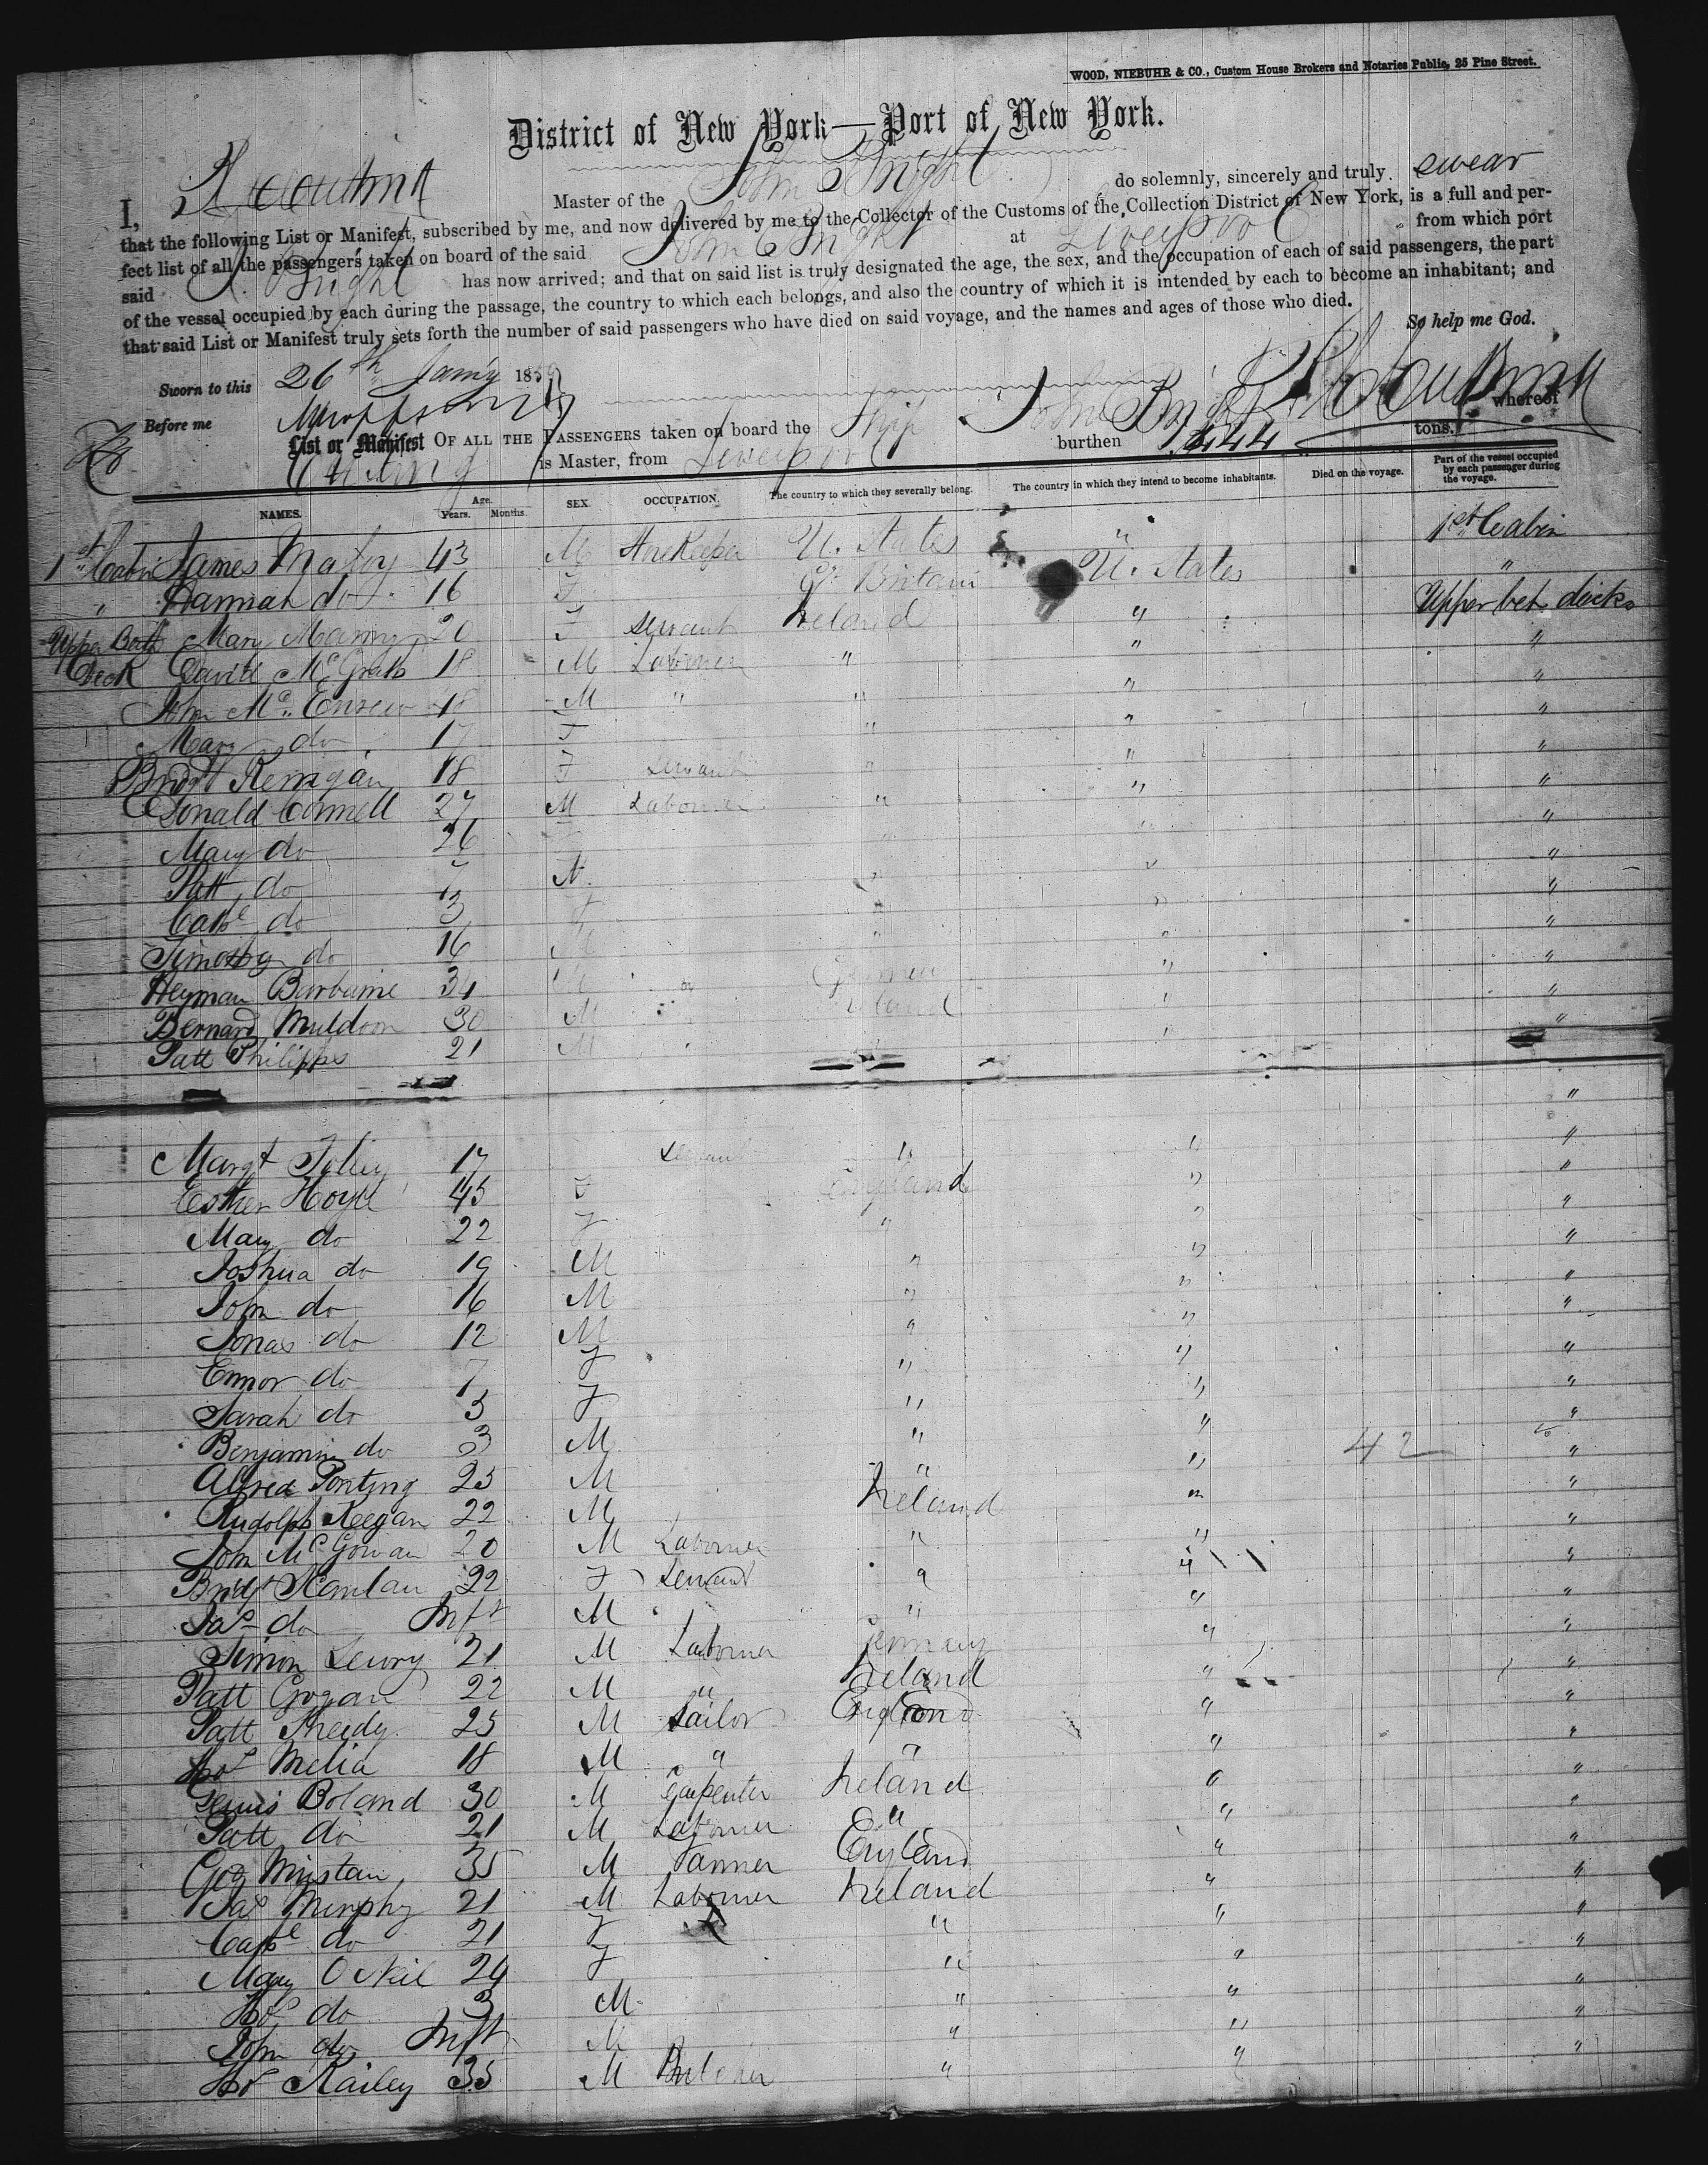 WOOD, NIEBUHR & CO., Custom House Brokers and Notaries Public, 25 Pine Street.
District of New York—Port of New York.
I, Master of the John Bright do solemnly, sincerely and truly swear
that the following List or Manifest, subscribed by me, and now delivered by me to the Collector of the Customs of the Collection District of New York, is a full and per-
fect list of all the passengers taken on board of the said John Bright at Liverpool from which port
said J. Bright has now arrived; and that on said list is truly designated the age, the sex, and the occupation of each of said passengers, the part
of the vessel occupied by each during the passage, the country to which each belongs, and also the country of which it is intended by each to become an inhabitant; and
that said List or Manifest truly sets forth the number of said passengers who have died on said voyage, and the names and ages of those who died.
So help me God.
Sworn to this 26th Jany 1859
Before me
List or Manifest OF ALL THE PASSENGERS taken on board the Ship John Bright whereof
is Master, from Liverpool burthen 1444 tons.
NAMES. Age. Years. Months. SEX. OCCUPATION. The country to which they severally belong. The country in which they intend to become inhabitants. Died on the voyage. Part of the vessel occupied by each passenger during the voyage.
1st Cabin James Maloy 43 M Storekeeper U. States " 1st Cabin
" Hannah do 16 F Gt Britain U. States "
Upper Betn Mary Manny 20 F Servant Ireland " Upper bet decks
Deck David McGrath 18 M Labourer " " "
John Mc 48 M " " " "
Mary do 17 F " " "
Bridgt Kernigan 18 F Servant " " "
Donald Connell 27 M Labourer " " "
Mary do 26 F " " "
Patt do M " " "
Cathe do 3 F " " "
Timothy do 16 M " " "
Heyman 34 M " Germany " "
Bernard Muldoon 30 M Ireland " "
Patt Philipps 21 M " "
"
Margt 17 Servant " " "
Esther Hoyle 45 F England " "
Mary do 22 F " " "
Joshua do 19 M " " "
John do 16 M " " "
Jonas do 12 M " " "
Emor do 7 F " " "
Sarah do 3 F " " "
Benjamin do 3 M " " 42 "
Alfred Ponting 25 M " " "
Rudolph Keegan 22 M Ireland " "
John McGowan 20 M Labourer " " "
Bridgt Scanlan 22 F Servant " " "
Jas do Inft M " " "
Simon Lewry 21 M Labourer Germany " "
Patt Grogan 22 M " Ireland " "
Patt 25 M Sailor England " "
Thos Melia 18 M " " " "
Dennis Boland 30 M Carpenter Ireland " "
Patt do 21 M Labourer " " "
Geo 35 M Tanner England " "
Jas Murphy 21 M Labourer Ireland " "
Cathe do 21 F " " "
Mary O Neil 24 F " " "
Thos do 3 M " " "
John do Inft M " " "
Thos Railey 35 M Butcher " " "